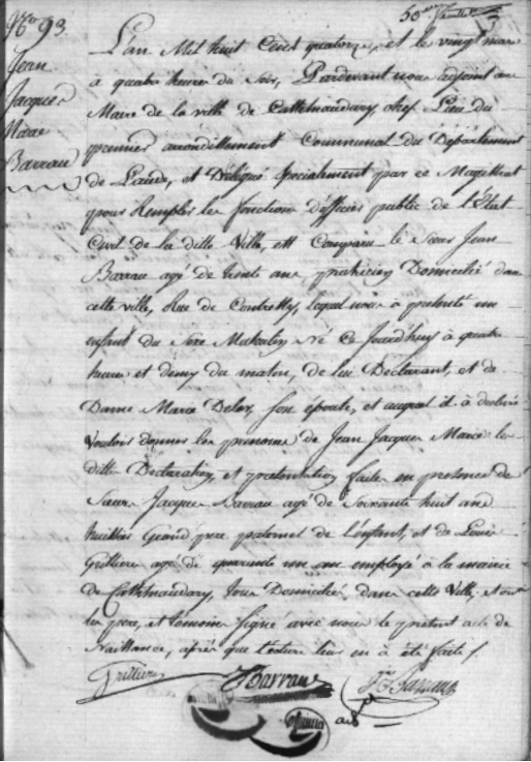 N.o 93.
Jean
Jacques
Marie
Barrau
L'an Mil huit Cent quatorze, et le vingt mars
à quatre heures du Soir, Pardevant nous adjoint au
Maire de la ville de Castelnaudary, chef Lieu du
premier arrondissement Communal du Département
de L'aude, et Délégué Spécialement par ce Magistrat
pour Remplir les fonctions d'officier public de l'État
Civil de la ditte Ville, est Comparu le Sieur Jean
Barrau agé de trente ans praticien Domicilié dans
cette ville, Rue de lequel nous à présenté un
enfant du Sexe Masculin né Ce Jourd'huy à quatre
heures et demy du matin, de lui Déclarant, et de
Dame Marie Delor, Son épouse, et auquel il à déclaré
Vouloir donner les prénoms de Jean Jacques Marie les
ditte Déclaration, et présentation faite en présence de
Sieur Jacques Barrau agé de Soixante huit ans
huissier Grand pere paternel de L'enfant, et de Louis
Grillieres agé de quarante un ans employé à la mairie
de Castelnaudary, Tous Domiciliés dans cette Ville, et ont
les pere, et témoins Signé avec nous le présent acte de
Naissance, après que lecture leur en à été faite /
Grillieres JBarrau Barrau
adj